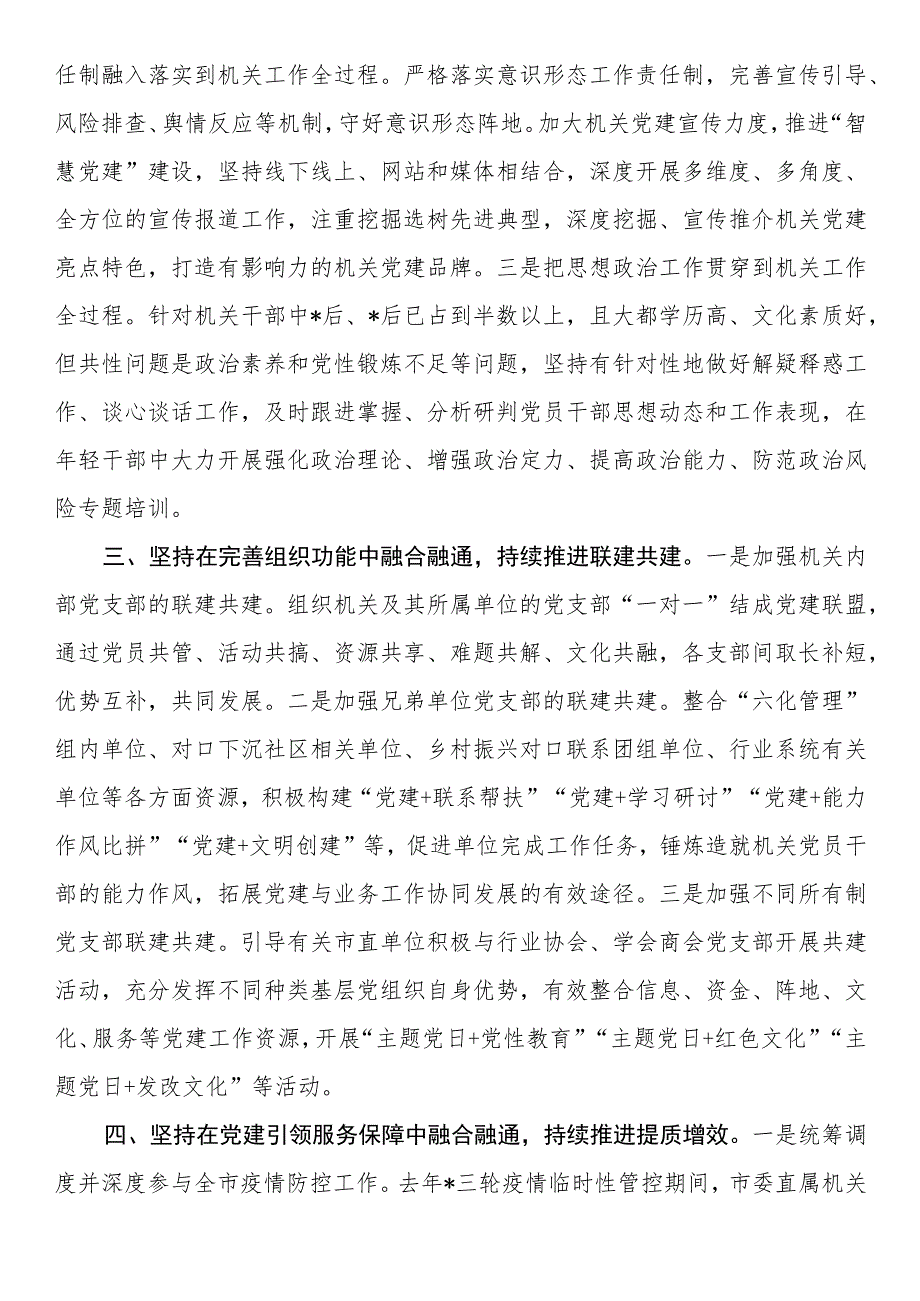 任制融入落实到机关工作全过程。严格落实意识形态工作责任制，完善宣传引导、
风险排查、舆情反应等机制，守好意识形态阵地。加大机关党建宣传力度，推进“智
慧党建”建设，坚持线下线上、网站和媒体相结合，深度开展多维度、多角度、
全方位的宣传报道工作，注重挖掘选树先进典型，深度挖掘、宣传推介机关党建
亮点特色，打造有影响力的机关党建品牌。三是把思想政治工作贯穿到机关工作
全过程。针对机关干部中*后、*后已占到半数以上，且大都学历高、文化素质好，
但共性问题是政治素养和党性锻炼不足等问题，坚持有针对性地做好解疑释惑工
作、谈心谈话工作，及时跟进掌握、分析研判党员干部思想动态和工作表现，在
年轻干部中大力开展强化政治理论、增强政治定力、提高政治能力、防范政治风
险专题培训。
三、坚持在完善组织功能中融合融通，持续推进联建共建。一是加强机关内
部党支部的联建共建。组织机关及其所属单位的党支部“一对一”结成党建联盟，
通过党员共管、活动共搞、资源共享、难题共解、文化共融，各支部间取长补短，
优势互补，共同发展。二是加强兄弟单位党支部的联建共建。整合“六化管理”
组内单位、对口下沉社区相关单位、乡村振兴对口联系团组单位、行业系统有关
单位等各方面资源，积极构建“党建+联系帮扶”“党建+学习研讨”“党建+能力
作风比拼”“党建+文明创建”等，促进单位完成工作任务，锤炼造就机关党员干
部的能力作风，拓展党建与业务工作协同发展的有效途径。三是加强不同所有制
党支部联建共建。引导有关市直单位积极与行业协会、学会商会党支部开展共建
活动，充分发挥不同种类基层党组织自身优势，有效整合信息、资金、阵地、文
化、服务等党建工作资源，开展“主题党日+党性教育”“主题党日+红色文化”“主
题党日+发改文化”等活动。
四、坚持在党建引领服务保障中融合融通，持续推进提质增效。一是统筹调
度并深度参与全市疫情防控工作。去年*三轮疫情临时性管控期间，市委直属机关